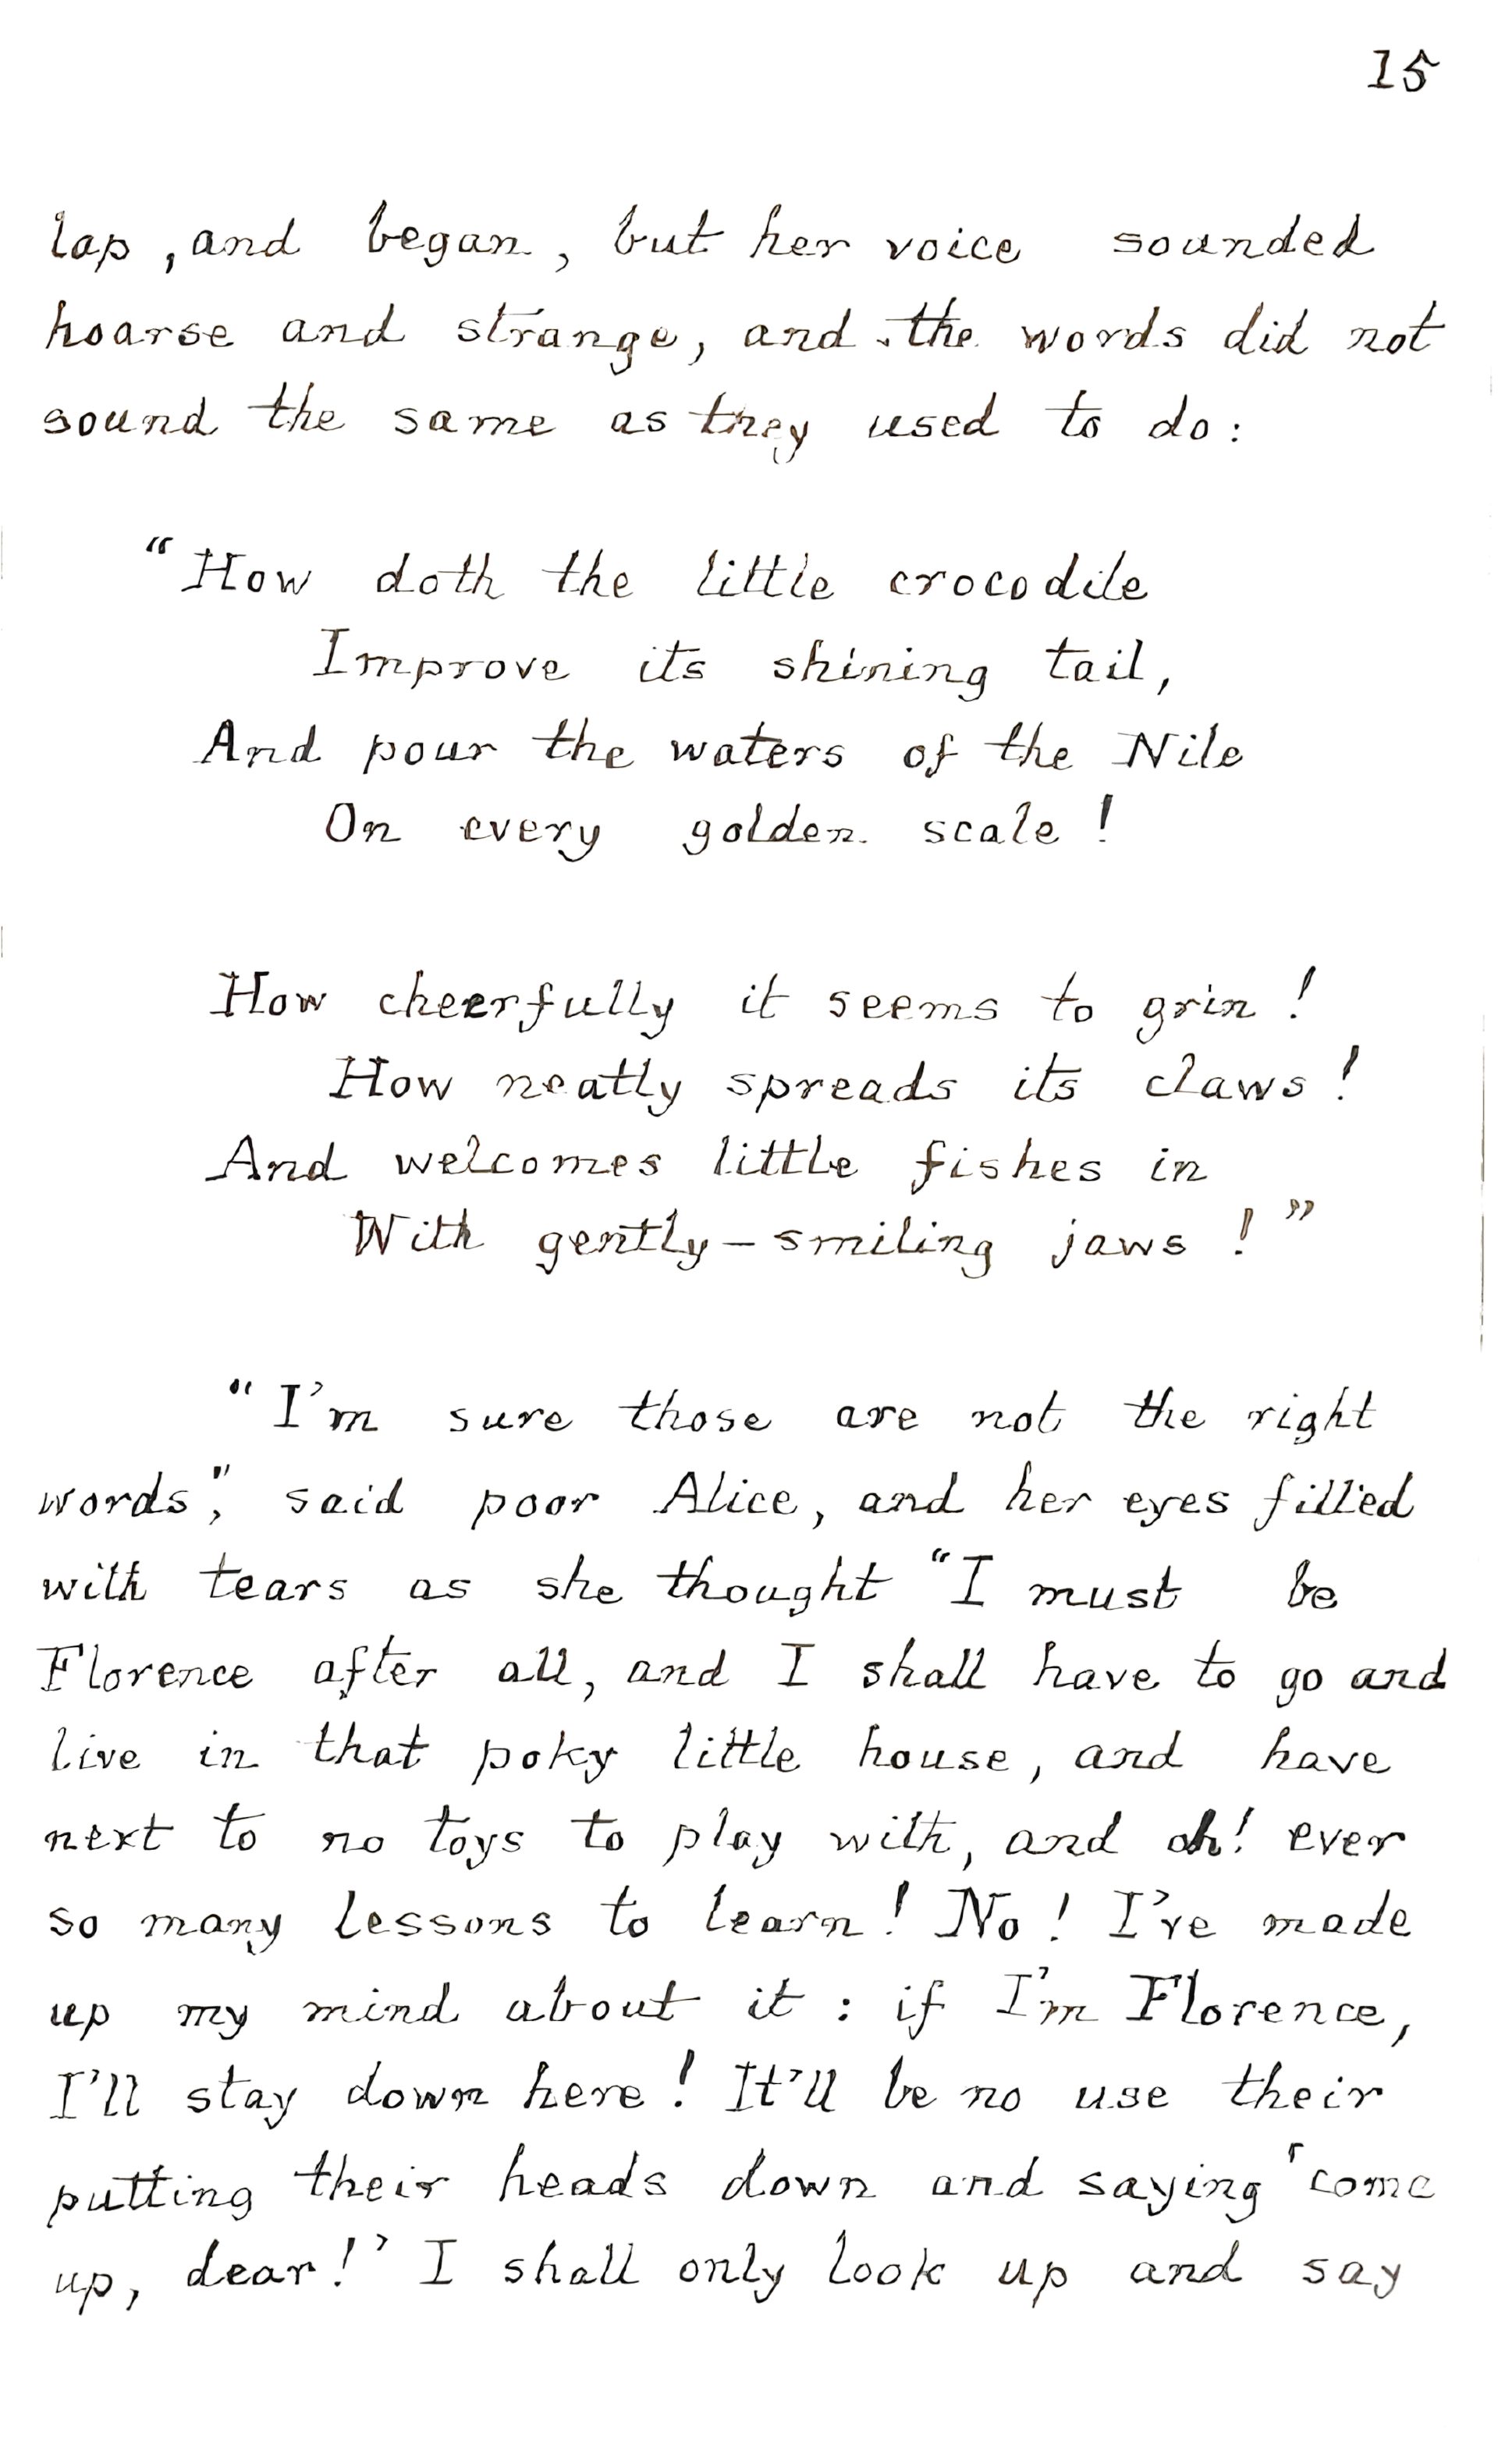 15
lap, and began, but her voice sounded
hoarse and strange, and the words did not
sound the same as they used to do:
“How doth the little crocodile
Improve its shining tail,
And pour the waters of the Nile
On every golden scale!
How cheerfully it seems to grin!
How neatly spreads its claws!
And welcomes little fishes in
With gently-smiling jaws!”
“I'm sure those are not the right
words,” said poor Alice, and her eyes filled
with tears as she thought “I must be
Florence after all, and I shall have to go and
live in that poky little house, and have
next to no toys to play with, and oh! ever
so many lessons to learn! No! I've made
up my mind about it: if I'm Florence,
I'll stay down here! It'll be no use their
putting their heads down and saying 'come
up, dear!' I shall only look up and say